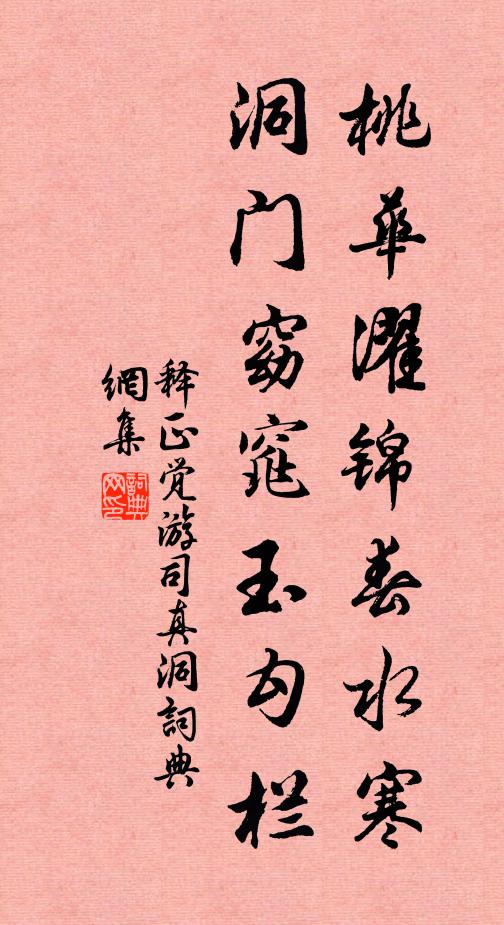 桃华濯锦春水寒
洞门窈窕玉勾栏
释正觉游司真洞詞典
網集
詞典网印